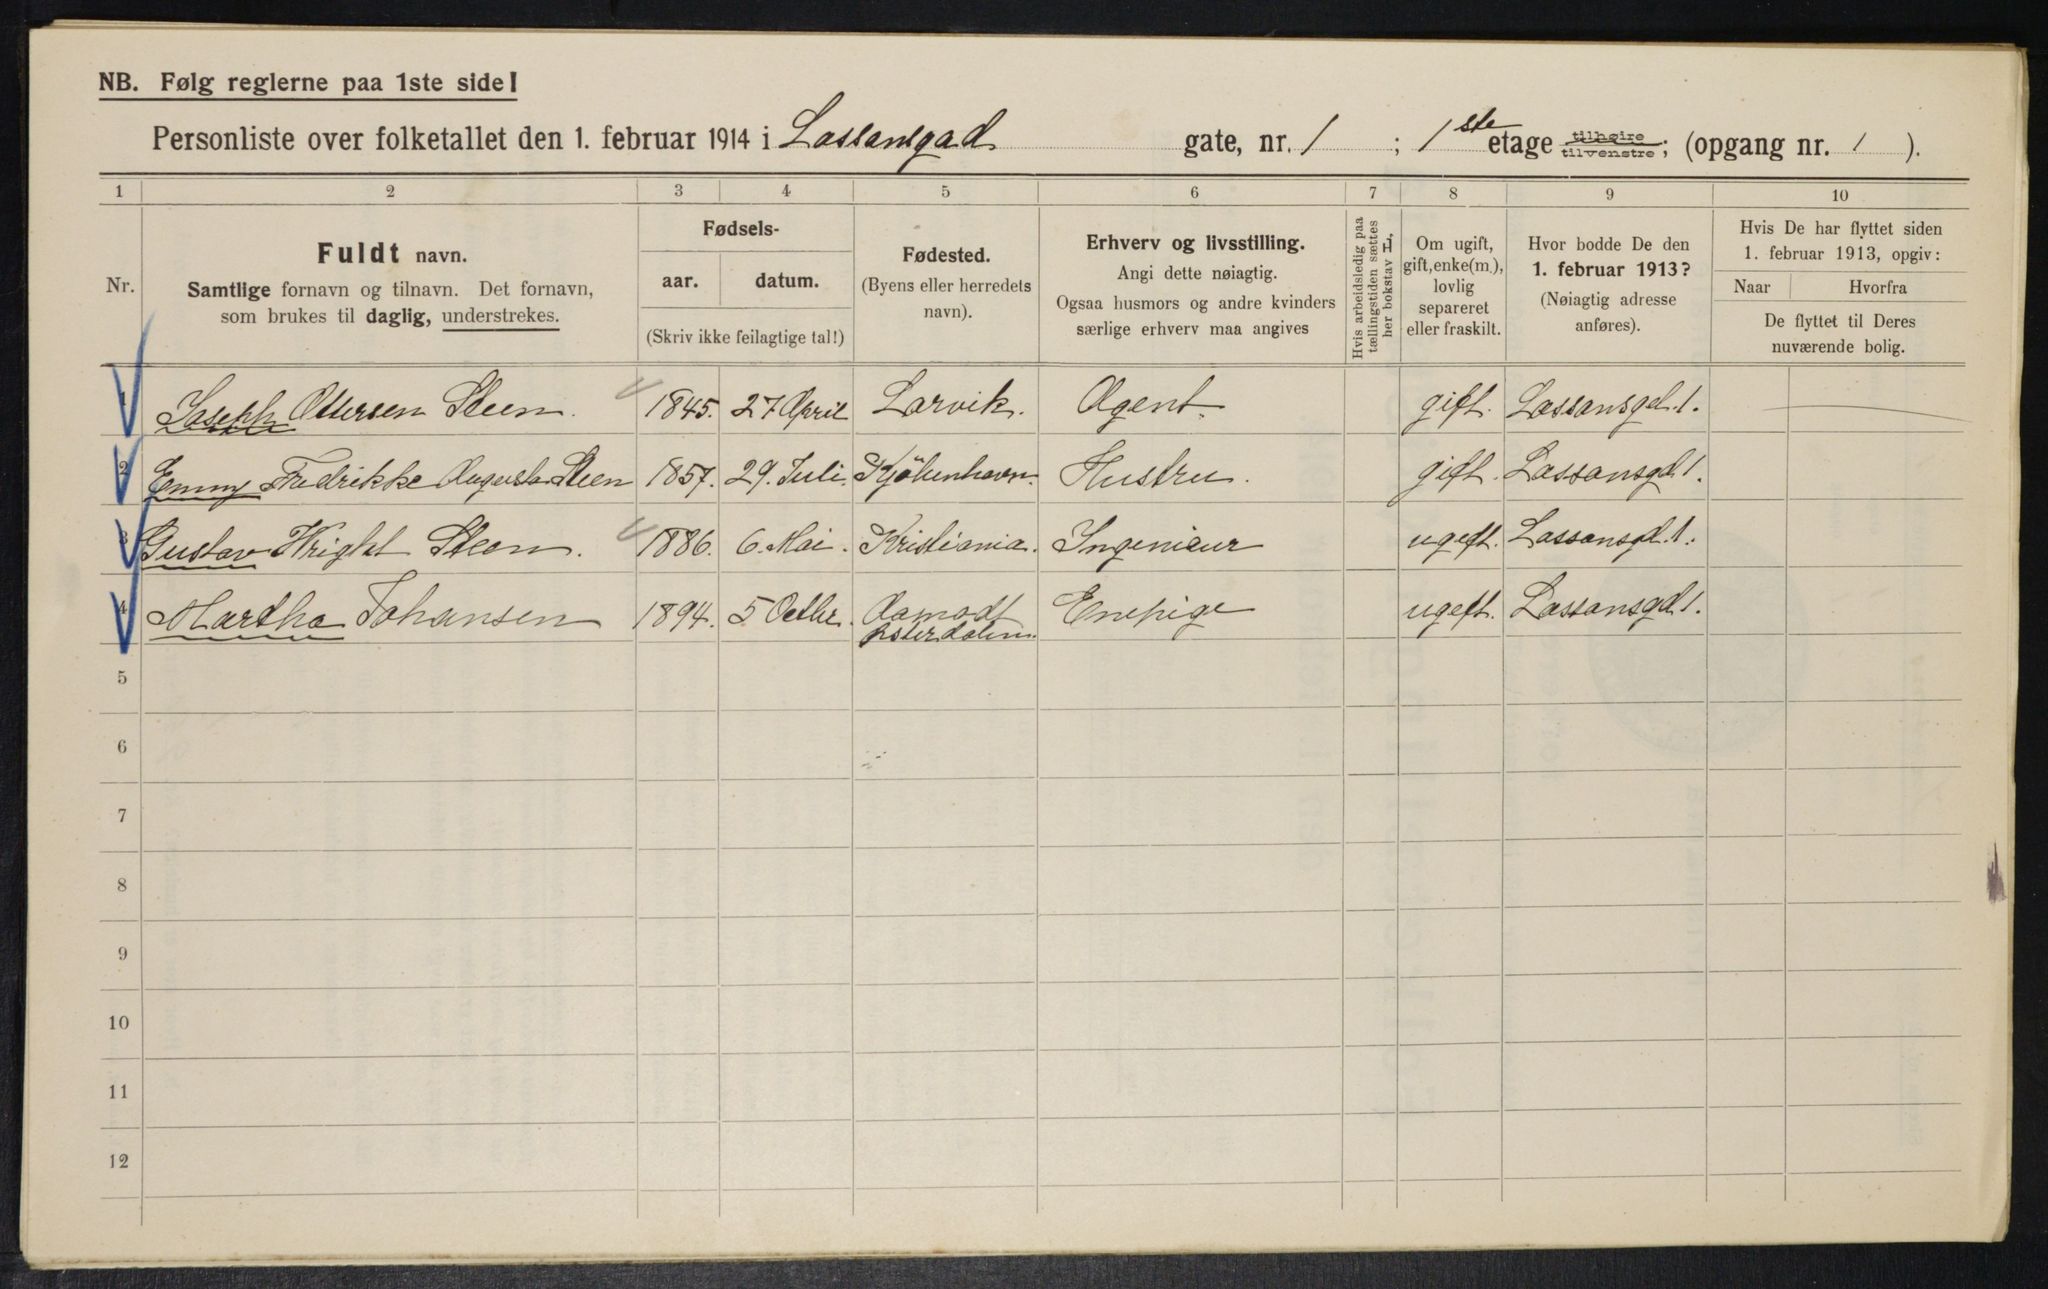 NB. Følg reglerne paa 1ste side!
Personliste over folketallet den 1. februar 1914 i Lassonsgad gate, nr. 1 ; 1ste etage tilhøire tilvenstre; (opgang nr. 1 ).
1 2 3 4 5 6 7 8 9 10
Nr.
Fuldt navn.
Samtlige fornavn og tilnavn. Det fornavn,
som brukes til daglig, understrekes.
Fødsels-
aar. datum.
(Skriv ikke feilagtige tal!)
Fødested.
(Byens eller herredets
navn).
Erhverv og livsstilling.
Angi dette nøiagtig.
Ogsaa husmors og andre kvinders
særlige erhverv maa angives
Hvis arbeidsledig paa
tællingstiden sættes
her bokstav L,
Om ugift,
gift, enke(m.),
lovlig
separeret
eller fraskilt.
Hvor bodde De den
1. februar 1913?
(Nøiagtig adresse
anføres).
Hvis De har flyttet siden
1. februar 1913, opgiv:
Naar Hvorfra
De flyttet til Deres
nuværende bolig.
1 Joseph Ottersen Steen. 1845. 27 April Larvik. Agent. gift. Lassonsgd. 1.
2 Emmy Fredrikke Augusta Steen 1857. 29. Juli. Kjöbenhavn. Hustru. gift. Lassonsgd 1.
3 Gustav Wright Steen. 1886. 6. Mai. Kristiania. Ingeniør ugift. Lassonsgd. 1.
4 Martha Johansen 1894. 5 Octbr. Aamodt Enepige ugift. Lassonsgd 1.
Østerdalen.
5
6
7
8
9
10
11
12